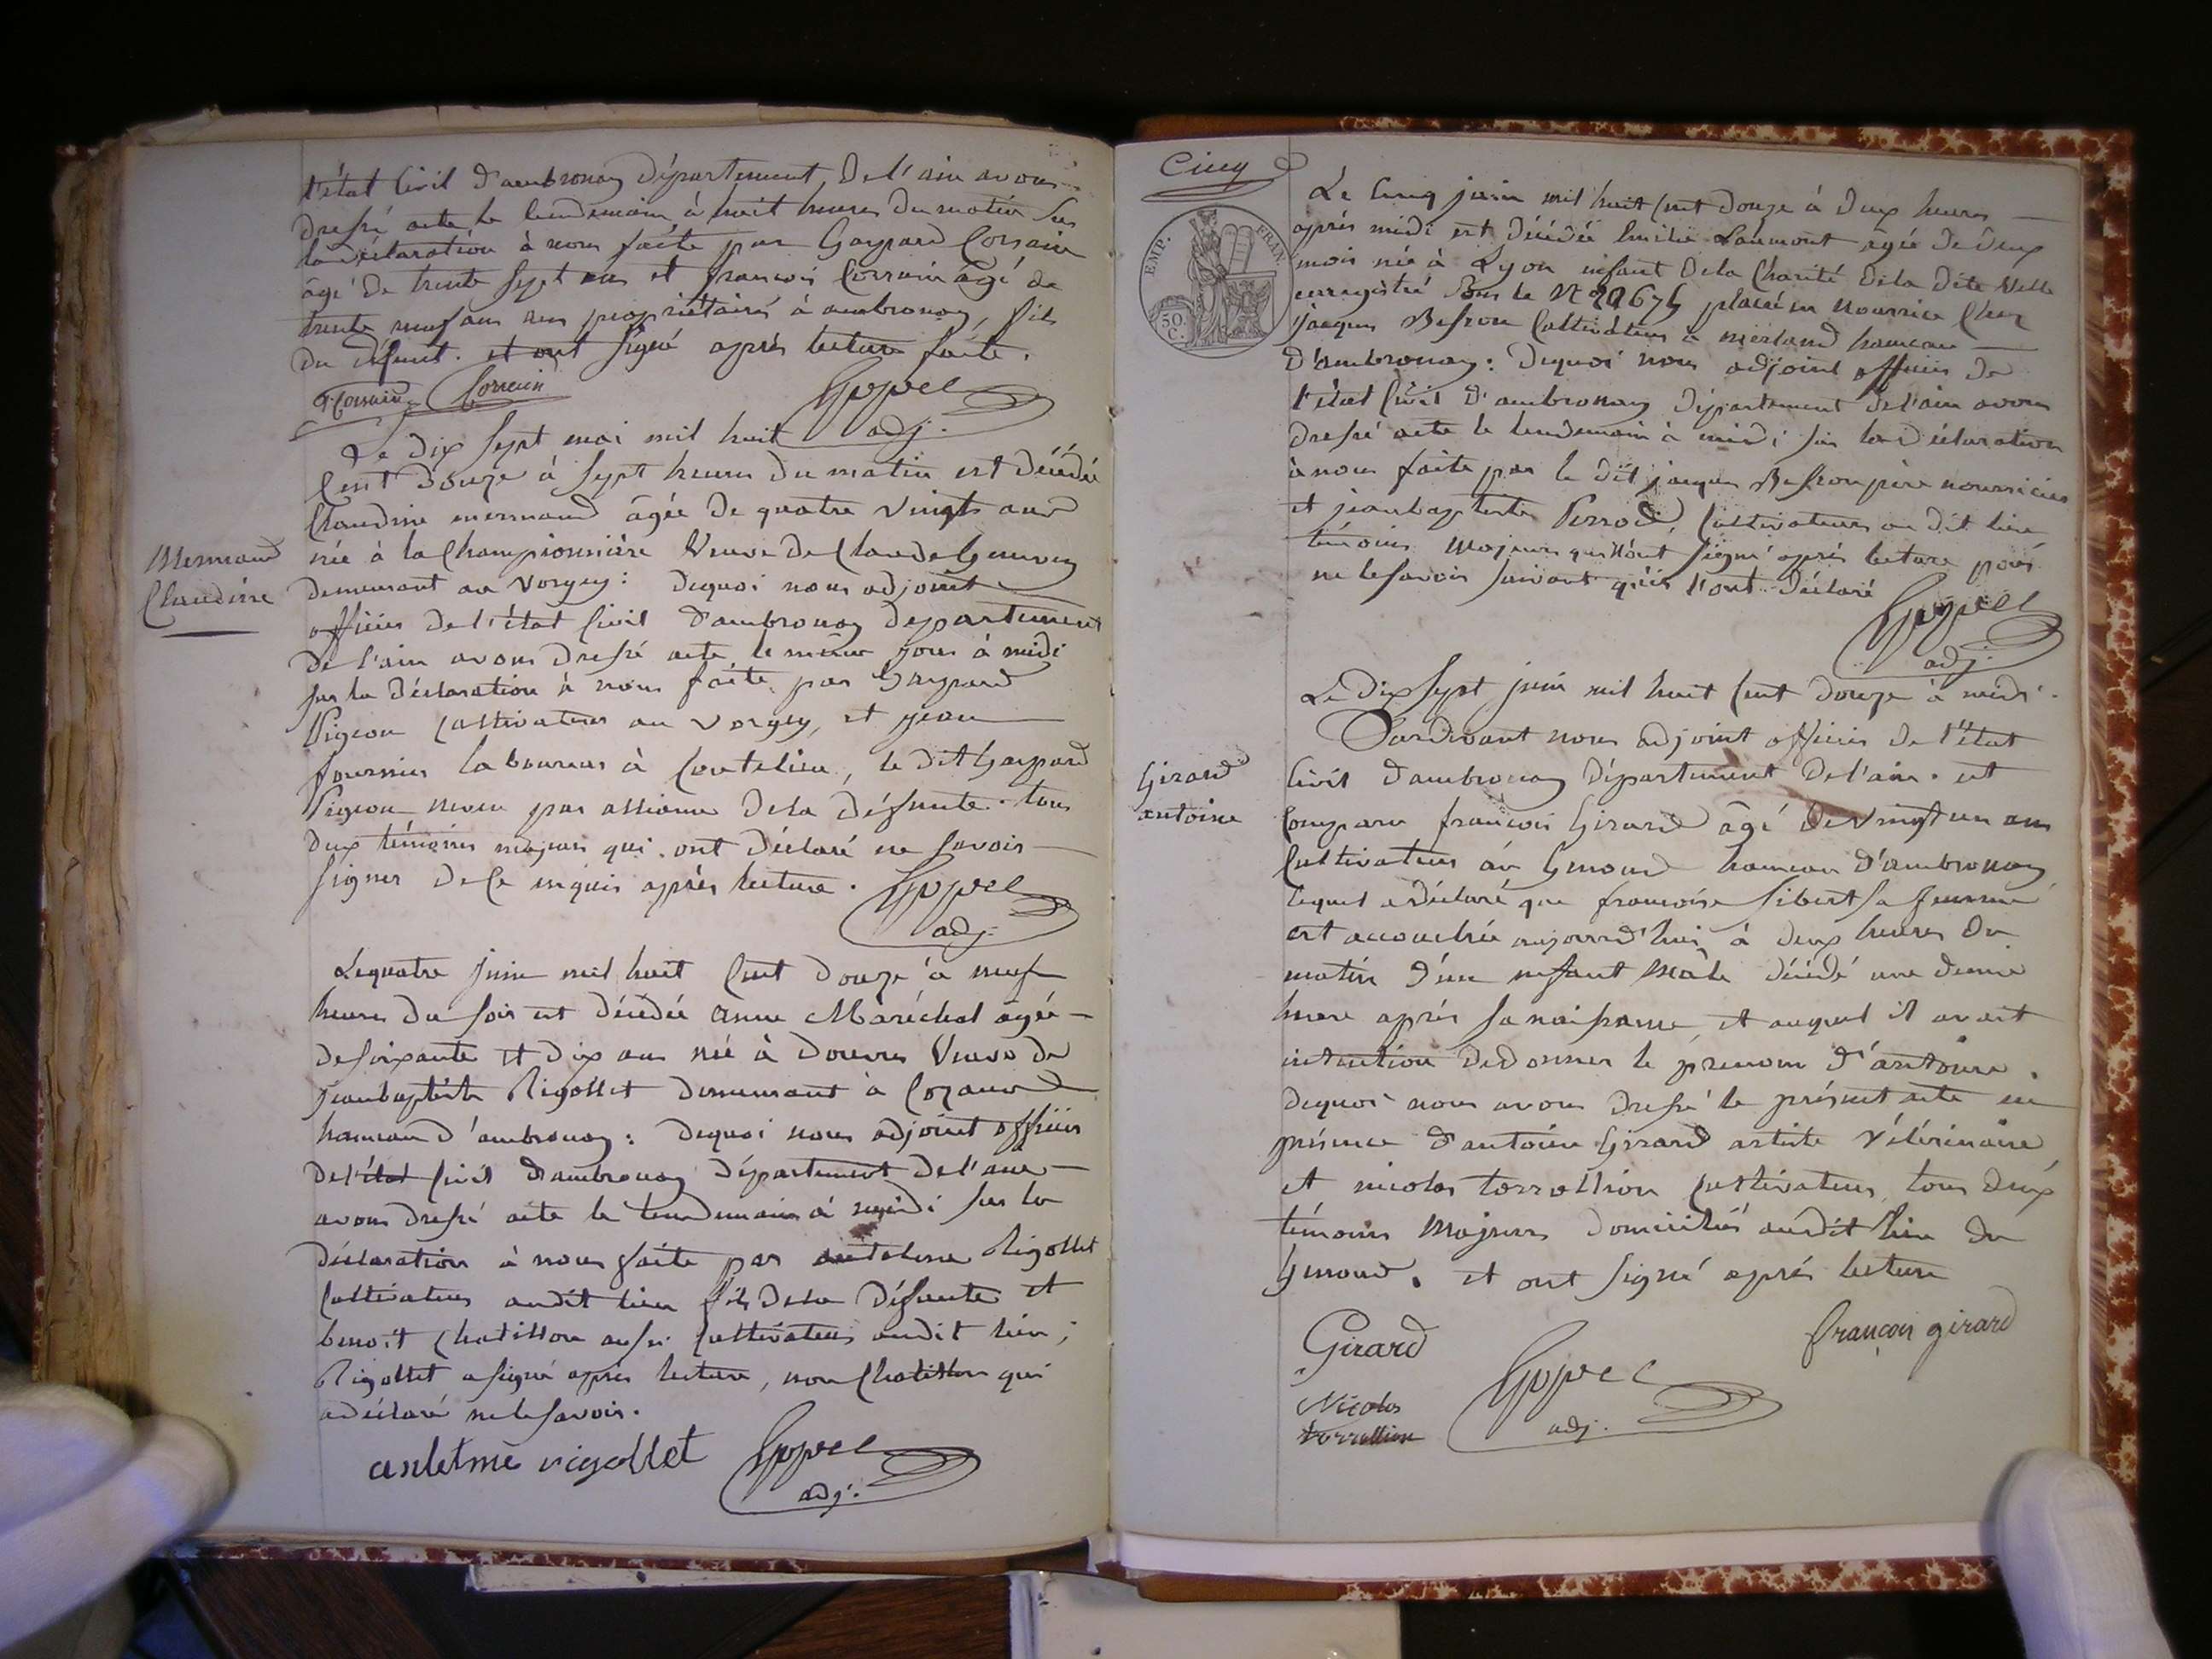 l'état Civil d'ambronay Département De l'ain avons
dressé acte le lendemain à huit heures du matin sur
la déclaration à nous faite par Gaspard Corsain
âgé de trente sept ans et françois Corsain âgé de
trente neuf ans propriétaires à ambronay, fils
du défunt. et ont signé après lecture faite.
adj.
Le dix sept mai mil huit
Cent Douze à sept heures du matin est décédée
Claudine mermand âgée De quatre vingts ans
née à la Championnière Veuve de Claude
Mermand
Claudine
demeurant au vorgey: Dequoi nous adjoint
officier de l'état Civil d'ambronay Departement
de l'ain avons Dressé acte le même jour à midi
sur la déclaration à nous faite par Gaspard
Pigeon Cultivateur au vorgey, et jean
fournier laboureur à Coutelieu, le dit Gaspard
Pigeon neveu par alliance Dela défunte. tous
deux témoins majeurs qui ont déclaré ne savoir
signer De ce enquis après lecture.
adj.
Lequatre juin mil huit Cent Douze à neuf
heures du soir est décédée anne Maréchal agée
de soixante et dix ans née à Douvres Veuve de
jeanbaptiste Rigollet demeurant à Cozance
hameau d'ambronay: Dequoi nous adjoint officier
De l'état Civil d'ambronay Département de l'ain
avons dressé acte le lendemain à midi sur la
déclaration à nous faite par antelme Rigollet
Cultivateur audit lieu fils dela défunte et
benoit Chatillon aussi Cultivateur audit lieu;
Rigollet a signé après lecture, non Chatillon qui
a déclaré ne le savoir.
antelme rigollet
adj.
Cinq
EMP. FRAN.
50 C.
Le Cinq juin mil huit Cent Douze à Deux heures
après midi est décédée Emilie Laumont agée de Deux
mois née à Lyon enfant Dela Charité dela dite Ville
enregistré sous le placé en nourrice Chez
jacques Besson Cultivateur à merland hameau
D'ambronay: Dequoi nous adjoint officier de
l'état Civil d'ambronay Département de l'ain avons
dressé acte le lendemain à midi sur la déclaration
à nous faite par le dit jacques Besson père nourricier
et jeanbaptiste Perrod, Cultivateurs au dit lieu
témoins Majeurs qui n'ont signé après lecture pour
ne le savoir suivant qu'ils l'ont déclaré
adj.
Le Dix sept juin mil huit Cent Douze à midi.
Pardevant nous adjoint officier de l'état
Girard
antoine
Civil d'ambronay Département de l'ain. est
Comparu françois Girard âgé de vingt un ans
Cultivateur au Genoud hameau d'ambronay
lequel a déclaré que françoise Sibert sa femme
est accouchée aujourd'hui à deux heures du
matin d'un enfant Mâle décédé une demie
heure après sa naissance et auquel il avait
intention de donner le prenom d'antoine.
dequoi nous avons dressé le présent acte en
présence d'antoine Girard artiste Vétérinaire
et nicolas torrollion Cultivateur, tous deux
témoins Majeurs domiciliés audit lieu du
Genoud. et ont signé après lecture
Girard
françois girard
Nicolas
torrollion
adj.